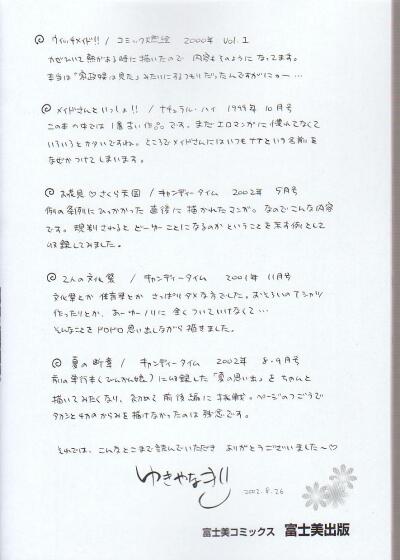 ウィッチメイド!! / コミック燃絵 2000年 Vol.1
かぜひいて熱がある時に描いたので 内容もそのようになってます。
本当は「家政婦は見た」みたいにするつもりだったんですがにゃー…
メイドさんといっしょ!! / ナチュラル・ハイ 1999年 10月号
この本の中では1番古い作品です。まだエロマンガに慣れてなくて
いろいろとカタいですね。ところでメイドさんにはいつもナナという名前を
なぜかつけてしまいます。
お花見♡さくら天国 / キャンディータイム 2002年 5月号
例の条例にひっかかった直後に描かれたマンガ。なのでこんな内容
です。規制されるとどーゆーことになるのかということを示す例として
収録してみました。
2人の文化祭 / キャンディータイム 2001年 11月号
文化祭とか体育祭とか さっぱりダメな方でした。おそろいのTシャツ
作ったりとか、あーゆーノリに全くついていけなくて…
そんなことをドロドロ思い出しながら描きました。
夏の断章 / キャンディータイム 2002年 8・9月号
前の単行本(ひんかん娘)に収録した「夏の思い出」をちゃんと
描いてみたくなり、初めて前後編に挑戦。ページのつごうで
タカシとチカのからみを描けなかったのは残念です。
それでは、こんなとこまで読んでいただき ありがとうございました〜♡
ゆきやなぎ
2002.8.26
富士美コミックス 富士美出版